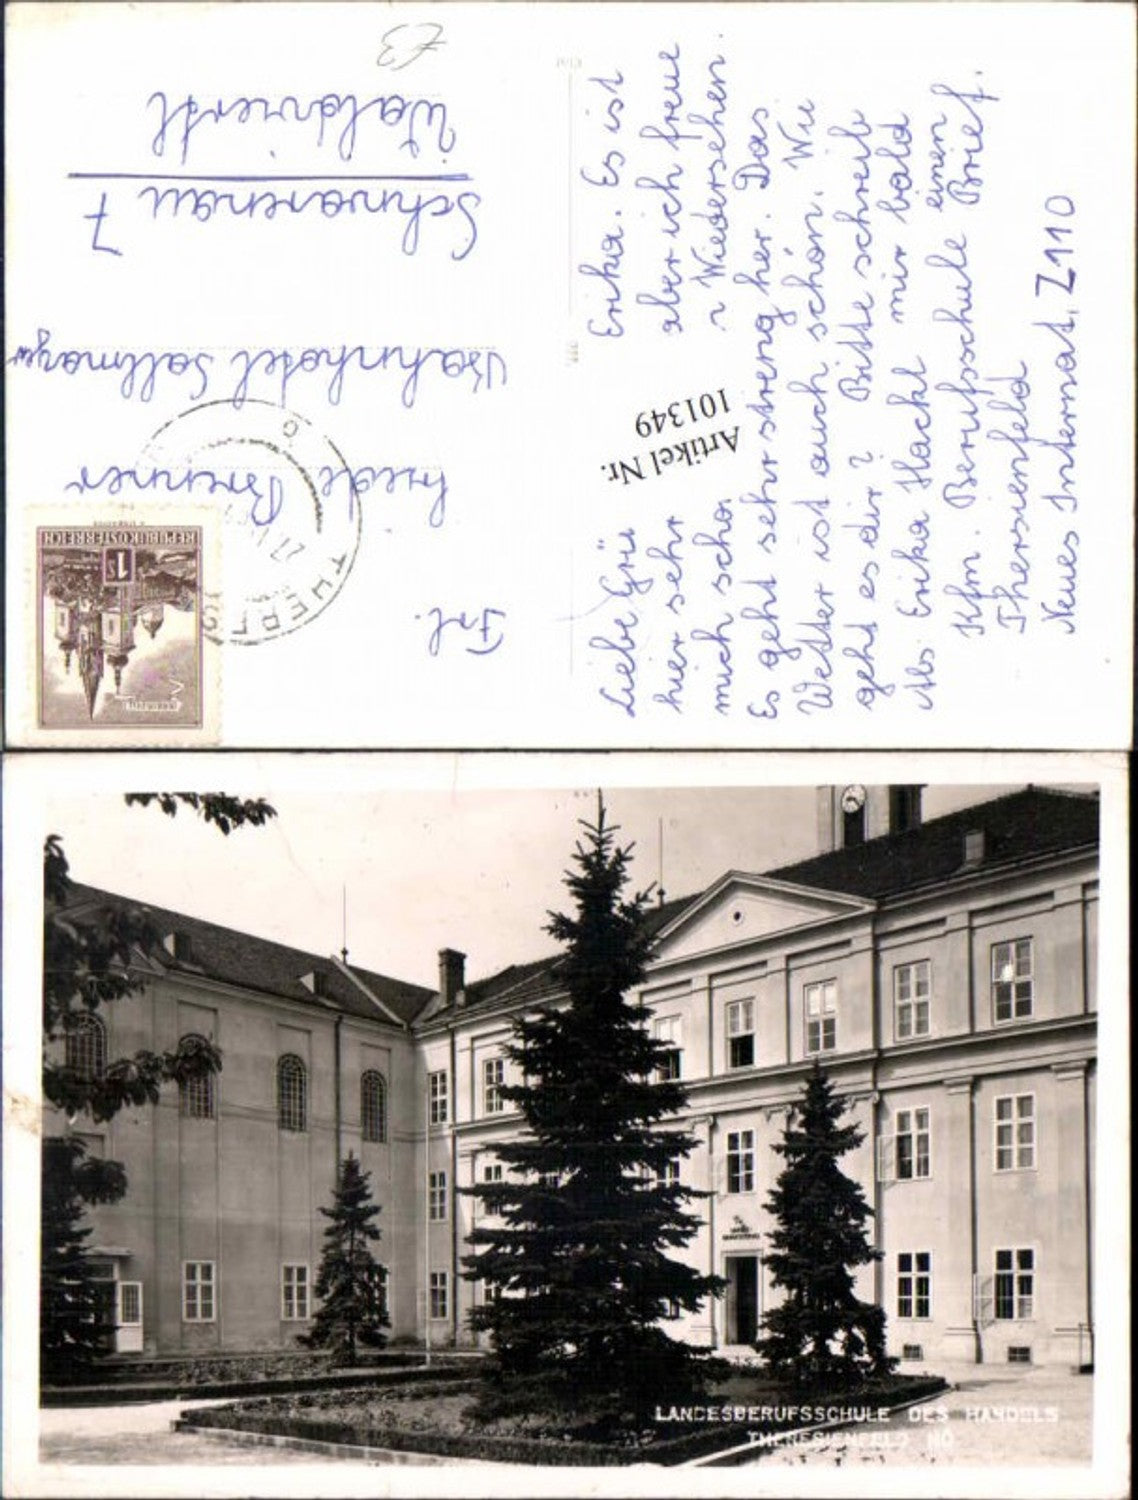 Liebe Erika. Es ist
hier sehr aber ich freue
mich schon Wiedersehen.
Es geht sehr streng her. Das
Wetter ist auch schön. Wie
geht es dir? Bitte schreib
Abs. Erika Hackl mir bald
einen
Kfm. Berufsschule Brief.
Thersienfeld
Neues Internat, Z110
Artikel Nr.
101349
REPUBLIK ÖSTERREICH
1 S
THER
Frl.
Brenner
Bahnhotel Sallmayer
Schwarzenau 7
Waldviertl
€3
LANDESBERUFSSCHULE DES HANDELS
THERESIENFELD NÖ